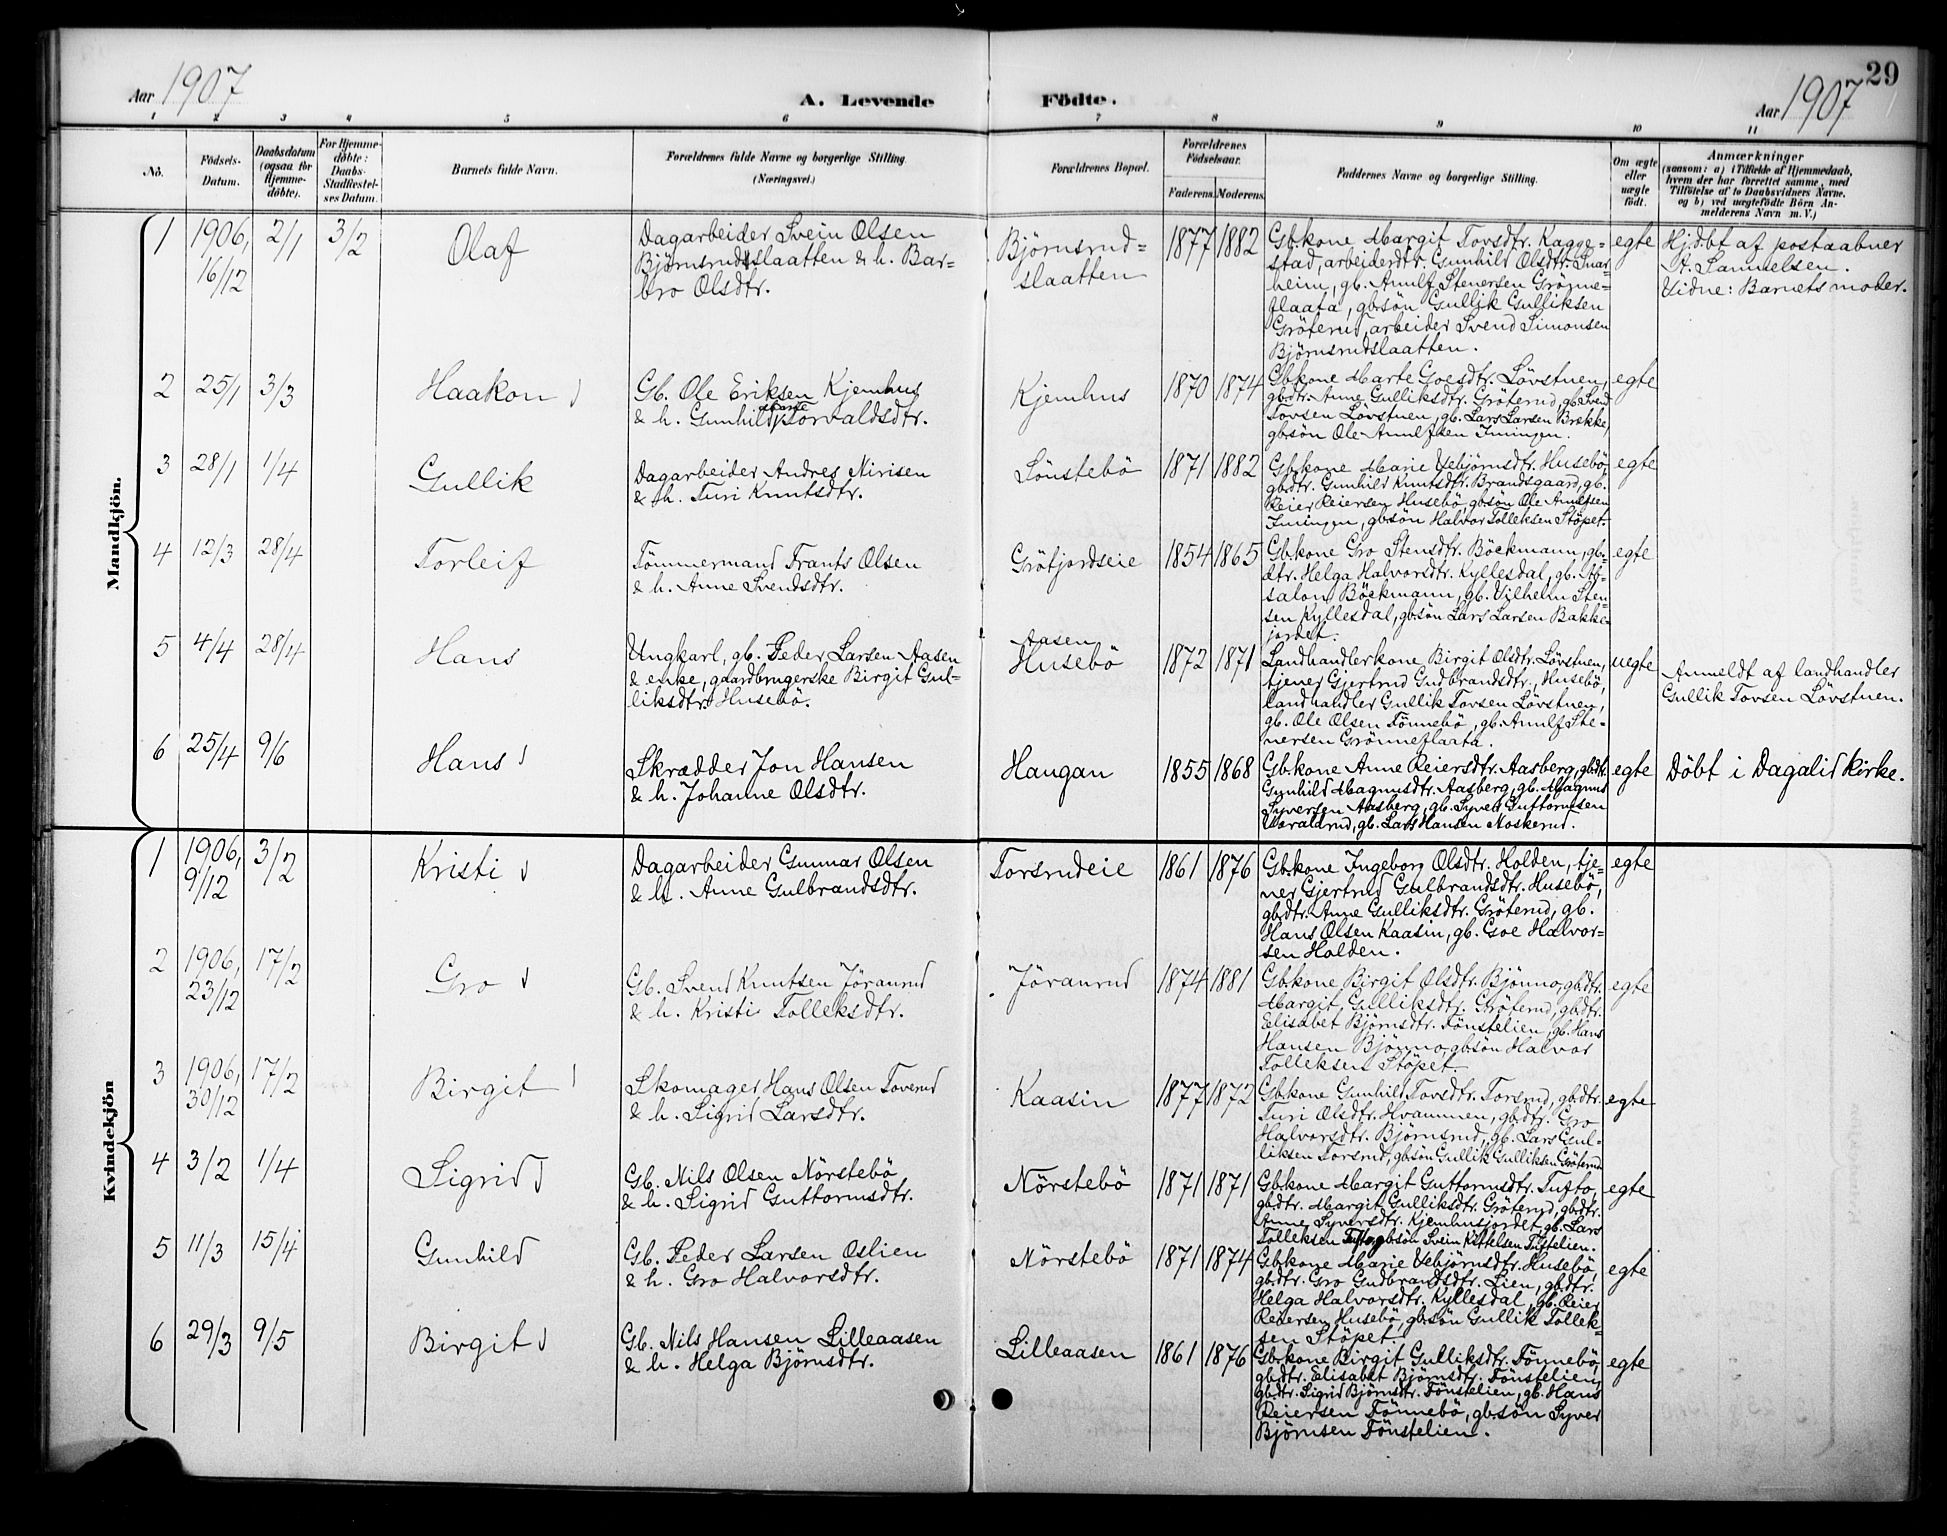 29
Aar 1907
A. Levende
Födte.
Aar 1907
1 2 3 4 5 6 7 8 9 10 11
No.
Födsels-
Datum.
Daabsdatum
(ogsaa for
Hjemme-
döbte).
For Hjemme-
döbte:
Daabs-
Stadfæstel-
ses Datum.
Barnets fulde Navn.
Forældrenes fulde Navne og borgerlige Stilling.
(Næringsvei.)
Forældrenes Bopæl.
Forældrenes
Födselsaar.
Faderens.
Moderens.
Faddernes Navne og borgerlige Stilling.
Om ægte
eller
uægte
födt.
Anmærkninger
(saasom: a) i Tilfælde af Hjemmedaab,
hvem der har forrettet samme, med
Tilföielse af to Daabsvidners Navne.
og b) ved uægtefödte Börn An-
melderens Navn m. V.)
Mandkjön.
1
1906,
16/12
2/1
3/2
Olaf
Dagarbeider Svein Olsen
Björnsrudslaatten & h. Bar-
bro Olsdtr.
Björnsrud-
slaatten
1877
1882
Gb.kone Margit Tovsdtr. Kagge-
stad, arbeiderdtr. Gunhild Olsdtr. Snar-
heim, gb. Arnulf Stenersen Grönne-
flaata, gb.sön Gullik Gulliksen
Gröterud, arbeider Svend Simonsen
Björnsrudslaatten.
egte
Hj.dbt af postaabner
A. Samuelsen.
Vidne: Barnets moder.
2
25/1
3/3
Haakon
Gb. Ole Eriksen Kjemhus
& h. Gunhild Marte Torvaldsdtr.
Kjemhus
1870
1874
Gb.kone Marte Goesdtr. Lövstuen,
gb.dtr. Anne Gulliksdtr. Gröterud, gb. Svend
Tovsen Lövstuen, gb. Lars Larsen Brekke,
gb.sön Ole Arnulfsen Imingen.
egte
3
28/1
1/4
Gullik
Dagarbeider Andres Nirisen
& h. Turi Knutsdtr.
Lönstebö
1871
1882
Gb.kone Marie Vebjörnsdtr. Husebö,
gb.dtr. Gunhild Knutsdtr. Brandsgaard, gb.
Reier Reiersen Husebö, gb.sön Ole Arnulfsen
Imingen, gb.sön Halvor Tolleksen Stöpet.
egte
4
12/3
28/4
Torleif
Tömmermand Frants Olsen
& h. Anne Svendsdtr.
Gröfjordseie
1854
1865
Gb.kone Gro Stensdtr. Böckmann, gb.-
dtr. Helga Halvorsdtr. Kyllesdal, gb. Ab-
salon Böckmann, gb. Vilhelm Sten-
sen Kyllesdal, gb.sön Lars Larsen Bakke-
jordet.
egte
5
4/4
28/4
Hans
Ungkarl, gb. Peder Larsen Aasen
& enke, gaardbrugerske Birgit Gul-
liksdtr. Husebö.
Aasen
Husebö
1872
1871
Landhandlerkone Birgit Olsdtr. Lövstuen,
tjener Gjertrud Gudbrandsdtr., Husebö,
landhandler Gullik Tovsen Lövstuen,
gb. Ole Olsen Fönnebö, gb. Arnulf Ste-
nersen Grönneflaata.
uegte
Anmeldt af landhandler
Gullik Tovsen Lövstuen.
6
25/4
9/6
Hans
Skrædder Jon Hansen
& h. Johanne Olsdtr.
Haugan
1855
1868
Gb.kone Anne Reiersdtr. Aasberg, gb.dtr.
Gunhild Magnusdtr. Aasberg, gb. Magnus
Syversen Aasberg, gb. Syver Guttormsen
Haraldrud, gb. Lars Hansen Moskerud.
egte
Döbt i Dagalid kirke.
Kvindekjön
1
1906,
9/12
3/2
Kristi
Dagarbeider Gunnar Olsen
& h. Anne Gulbrandsdtr.
Torsrudeie
1861
1876
Gb.kone Ingeborg Olsdtr. Holden, tje-
ner Gjertrud Gulbrandsdtr. Husebö,
gb.dtr. Anne Gulliksdtr. Gröterud, gb.
Hans Olsen Kaasin, gb. Goe Halvor-
sen Holden.
egte
2
1906,
23/12
17/2
Gro
Gb. Svend Knutsen Jöranrud
& h. Kristi Tolleksdtr.
Jöranrud
1874
1881
Gb.kone Birgit Olsdtr. Bjönno, gb.dtr.
Margit Gulliksdtr. Gröterud, gb.dtr.
Elisabet Björnsdtr. Fönstelien, gb. Hans
Hansen Bjönno, gb.sön Halvor
Tolleksen Stöpet.
egte
3
1906,
30/12
17/2
Birgit
Skomager Hans Olsen Toverud
& h. Sigrid Larsdtr.
Kaasin
1877
1872
Gb.kone Gunhild Tovsdtr. Torsrud, gb.dtr.
Turi Olsdtr. Hvammen, gb.dtr. Gro
Halvorsdtr. Björnsrud, gb. Lars Gul-
liksen Torsrud, gb.sön Gullik Gulliksen Gröterud
egte
4
3/2
1/4
Sigrid
Gb. Nils Olsen Nörstebö
& h. Sigrid Guttormsdtr.
Nörstebö
1871
1871
Gb.kone Margit Guttormsdtr. Tufto,
gb.dtr. Margit Gulliksdtr. Gröterud, gb.dtr.
Anne Syversdtr. Kjemhusjordet, gb. Lars
Tolleksen Tufto, gb.sön Svein Kittelsen Tuftelien.
egte
5
11/3
15/4
Gunhild
Gb. Peder Larsen Oslien
& h. Gro Halvorsdtr.
Nörstebö
1871
1874
Gb.kone Marie Vebjörnsdtr. Husebö,
gb.dtr. Gro Gudbrandsdtr. Lien, gb.dtr.
Helga Halvorsdtr. Kyllesdal, gb. Reier
Reiersen Husebö, gb.sön Gullik Tollek-
sen Stöpet.
egte
6
29/3
9/5
Birgit
Gb. Nils Hansen Lilleaasen
& h. Helga Björnsdtr.
Lilleaasen
1861
1876
Gb.kone Birgit Gulliksdtr. Fönnebö,
gb.dtr. Elisabet Björnsdtr. Fönstelien,
gb.dtr. Sigrid Björnsdtr. Fönstelien, gb. Hans
Reiersen Fönnebö, gb.sön Syver
Björnsen Fönstelien.
egte